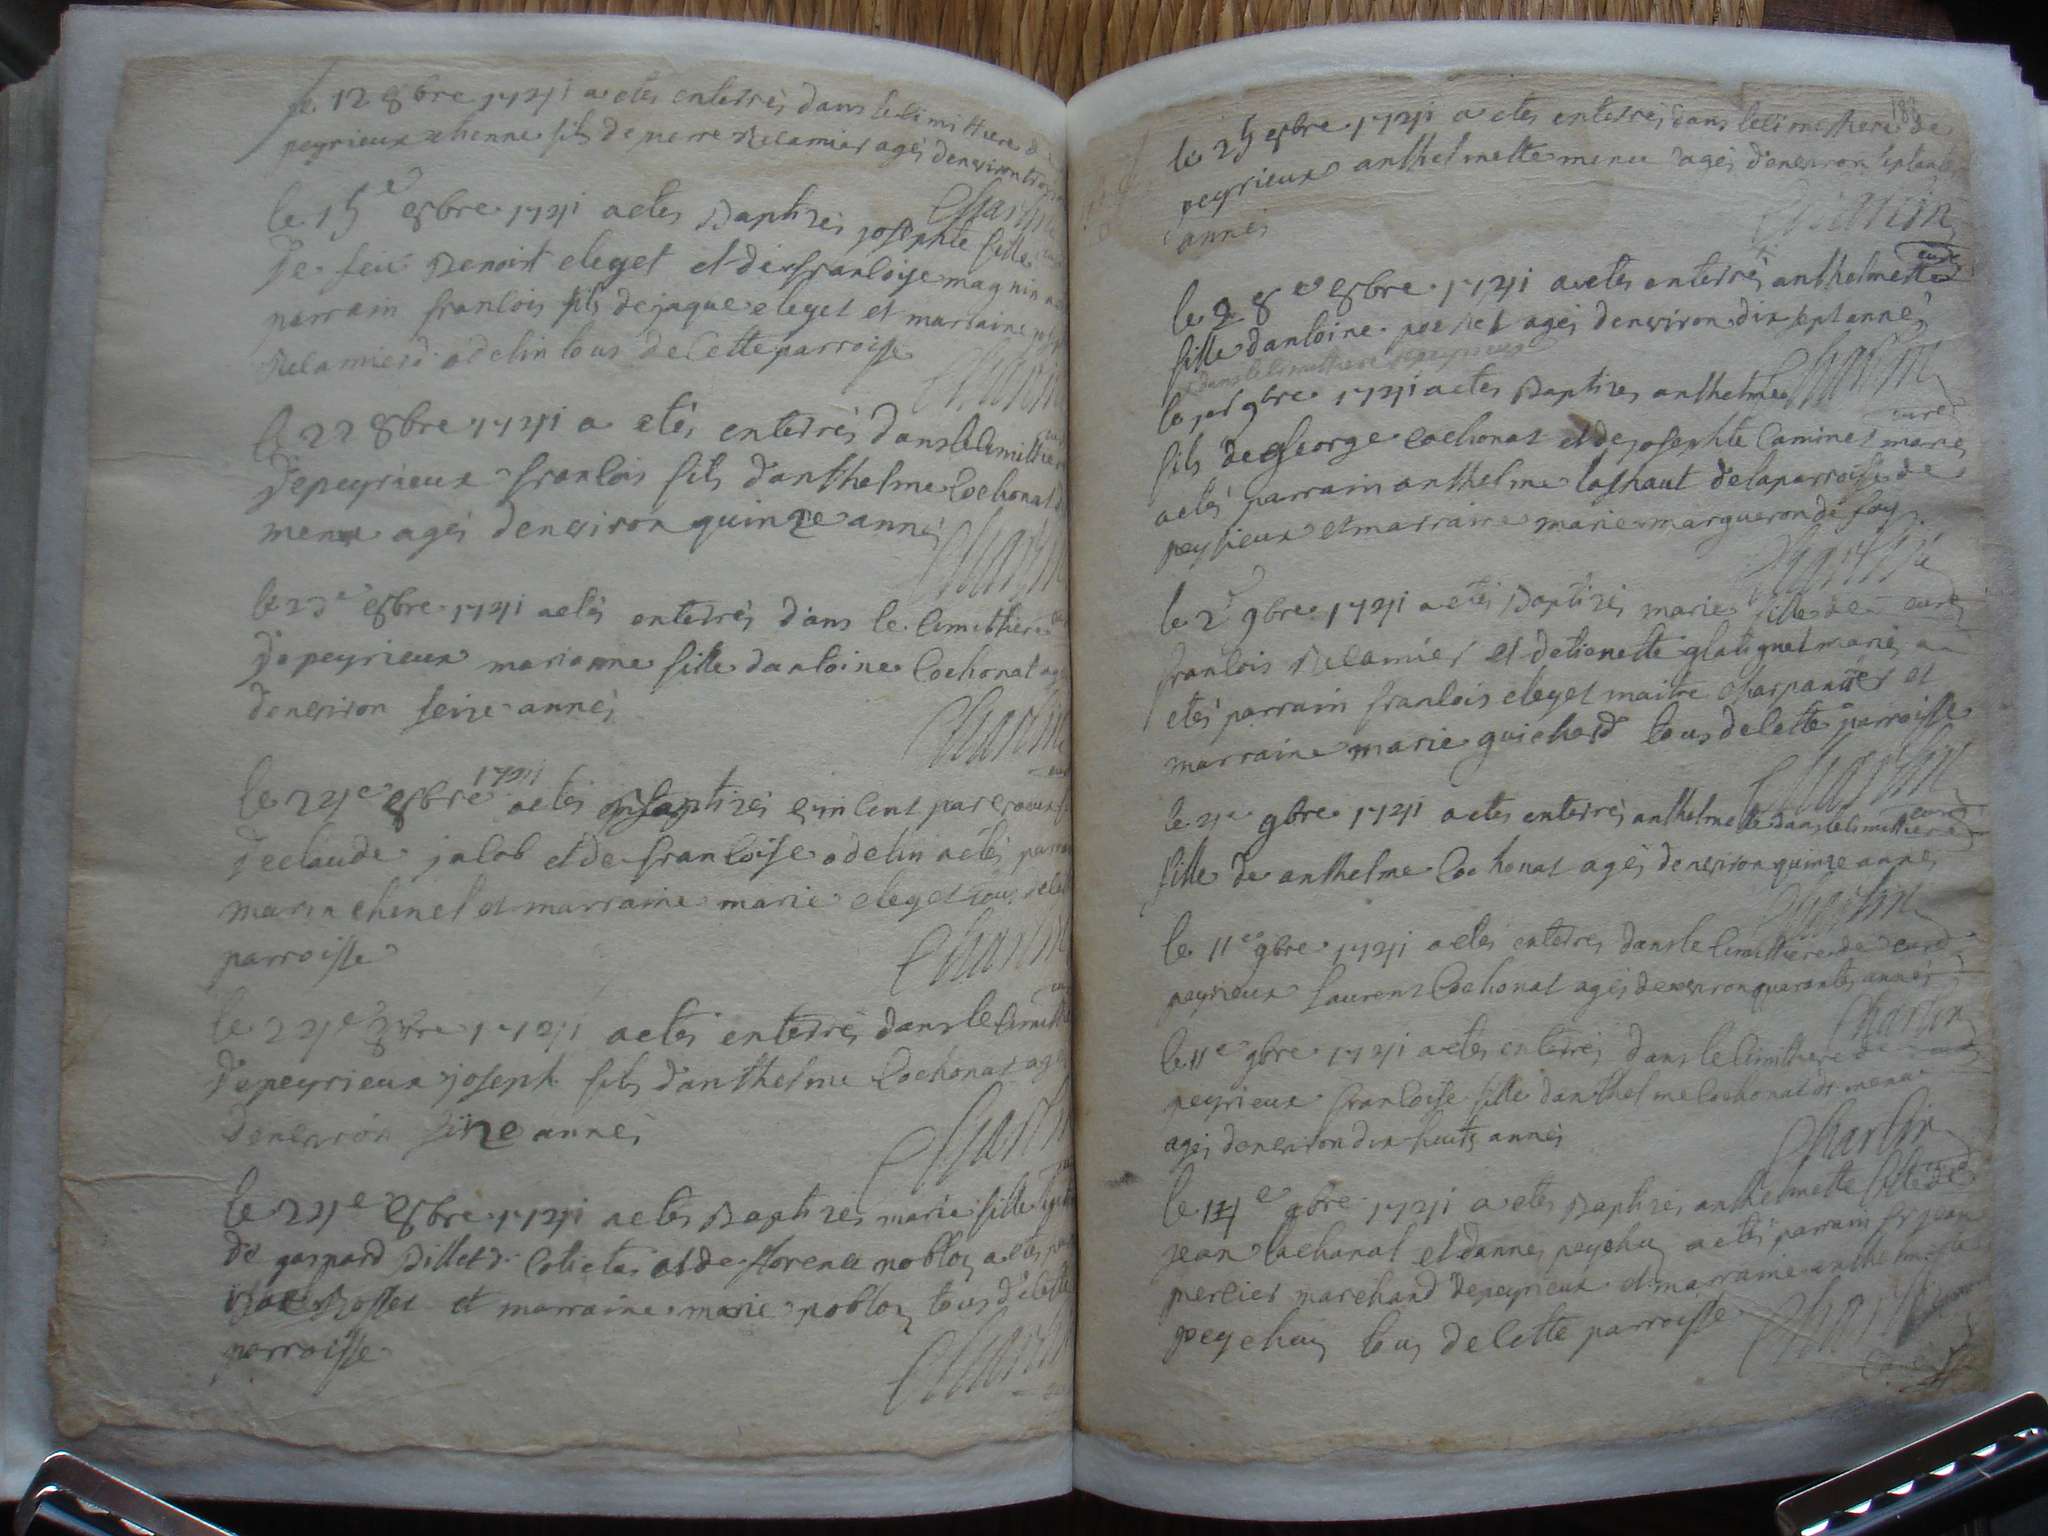 le 12 8bre 1741 a etes enterrés dans le cimittiere de
peyrieux etienne fils de pierre Recamier agés denviron
Charlin
le 15e 8bre 1741 a etes Baptisés josephte fille
De feu Benoit eleget et de francoise magnin
parrain francois fils de jaque eleget et marraine
Recamier odelin tous de cette parroisse
Charlin
le 22 8bre 1741 a etés enterrés dans le cimittiere
De peyrieux francois fils danthelme Cochonat
menu agés denviron quinze annés
Charlin
le 23e 8bre 1741 a etés enterrés dans le cimittiere
De peyrieux marianne fille dantoine Cochonat agés
denviron seize annés
Charlin
le 24e 8bre 1741 a etés Baptisés vincent
De claude jacob et de francoise odelin a etés parrain
marin chenet et marraine marie eleget tous de cette
parroisse
Charlin
le 24e 8bre 1741 a etés enterrés dans le cimittiere
De peyrieux joseph fils danthelme Cochonat agés
denviron size annés
Charlin
le 24e 8bre 1741 a etés Baptisés marie fille
de gaspard Dillet et de florence nobloz a etés
et marraine marie nobloz tous de cette
parroisse
Charlin
183
le 25 8bre 1741 a etes enterrés dans le cimethiere de
peyrieux anthelmette menu agés denviron septante
annés
Charlin
curé
le 28e 8bre 1741 a etés enterrés anthelmette
fille dantoine agés denviron dix sept annés
dans le cimittiere de peyrieux
Charlin
curé
le 1er 9bre 1741 a etes Baptises anthelme
fils de George Cochonat et de josephte Caminet mariés
a etés parrain anthelme lachaut de la parroisse de
peysieux et marraine marie margueron de foy
Charlin
curé
le 2e 9bre 1741 a etés Baptisés marie fille de
francois Recamier et detienette glatignet mariés a
etés parrain francois eleget maitre charpantier et
marraine marie guicherd tous de cette parroisse
Charlin
curé
le 4e 9bre 1741 a etes enterrés anthelmette dans le cimittiere
fille de anthelme Cochonat agés denviron quinze annés
Charlin
curé
le 11e 9bre 1741 a etes enterres dans le cimittiere de
peyrieux Laurent Cochonat agés denviron quarante annés
Charlin
curé
le 11e 9bre 1741 a etes enterrés dans le cimithiere de
peyrieux francoise fille danthelme Cochonat dt menu
agés denviron dix huits annés
Charlin
curé
le 14e 9bre 1741 a etes Baptisés anthelmette fille de
jean Cochonat et danne peychuz a etés parrain sr jean
percier marchand de peyrieux et marraine anthelmette
peychuz tous de cette parroisse
Charlin
curé